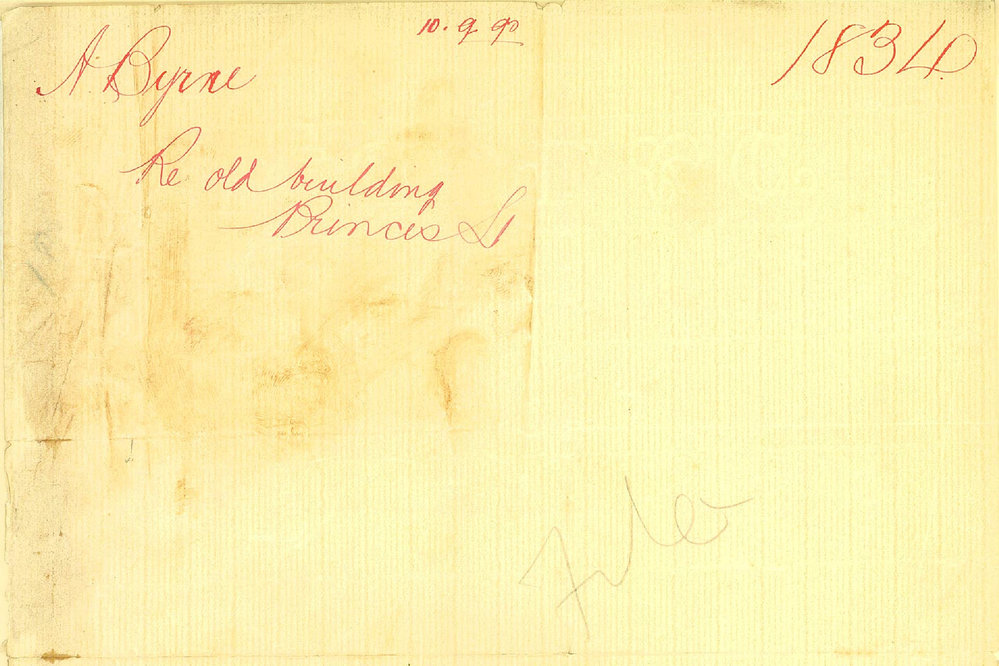 10.9.90
1834
A. Byrne
Re old building
Princes St